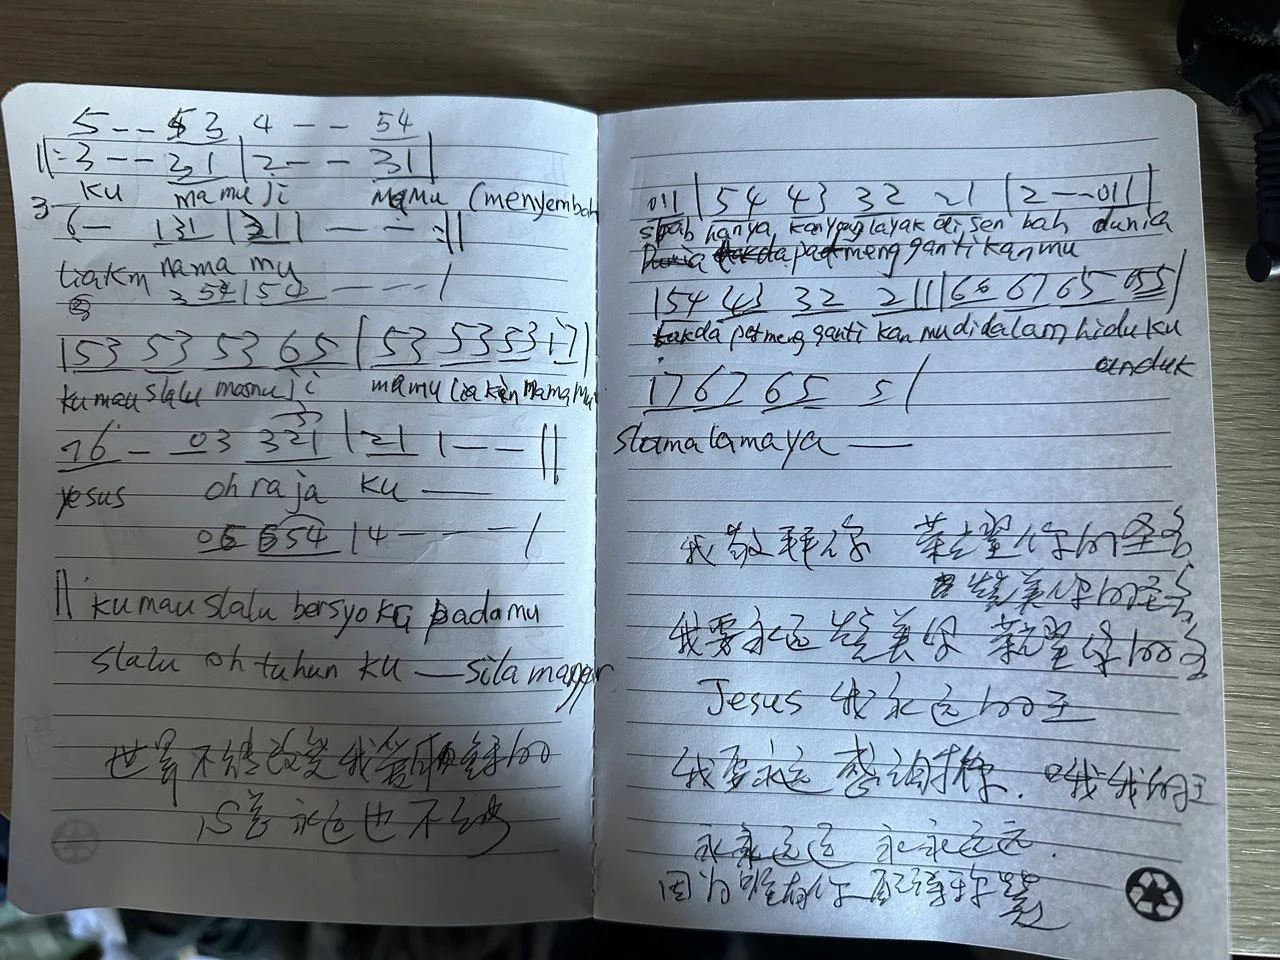 5 - - 53 4 - - 54
||: 3 - - 21 | 2 - - 31 |
ku mamuji mamu (menyembah
3
6 - 131 | 211 - - :||
liakm nama mu
3 54 | 54 - - - /
|53 53 53 65 | 53 53 53 i7|
kumau slalu mamuji mamu liakan namamu
76 - 03 321 | 21 1 - - ||
3
yesus oh raja ku —
654 | 4 - - - /
|| kumau slalu bersyoku padamu
slalu oh tuhun ku —
世界不能改变我
永远也不
011 | 54 43 32 21 | 2 - - 011 |
sbab hanya kanyang layak disen bah dunia
dapatmeng ganti kanmu
|54 43 32 211|66 6765 055|
takda patmeng ganti kan mudidalam hiduku
unduk
i767 65 5 /
slamalamaya —
我敬拜你 荣耀你的圣名
赞美你的圣名
我要永远赞美你 荣耀你的名
Jesus 我永远的主
我要永远感谢你. 哦我的主
永永远远 永永远远.
因为唯有你配得称赞